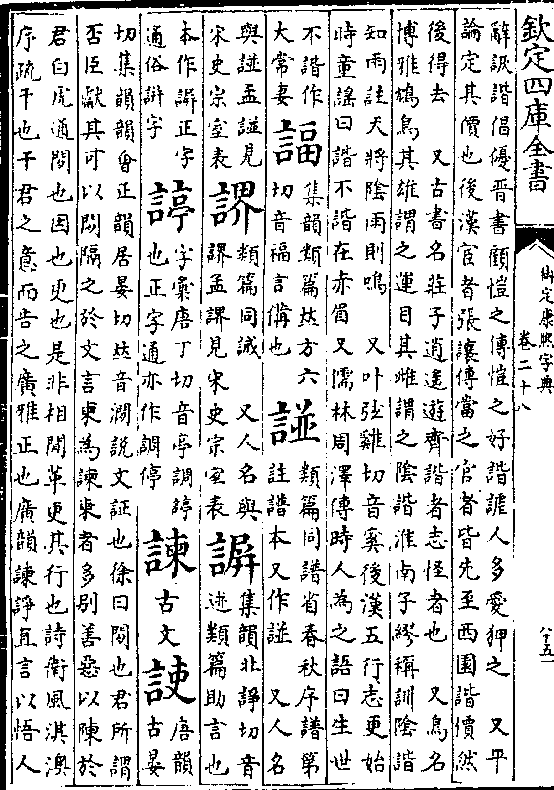 欽定四庫全書
御定康熙字典
卷二十八
辭詼諧倡優晉書顧愷之傳愷之好諧謔人多愛狎之 又平
論定其價也後漢宦者張讓傳當之官者皆先至西園諧價然
後得去 又古書名莊子逍遙遊齊諧者志怪者也 又鳥名
博雅鴆鳥其雄謂之運目其雌謂之陰諧淮南子繆稱訓陰諧
知雨註天將陰雨則鳴 又叶弦雞切音奚後漢五行志更始
時童謠曰諧不諧在赤眉 又儒林周澤傳時人為之語曰生世
不諧作
大常妻
諨
集韻類篇𠀤方六
切音福言備也
類篇同譜省春秋序譜第
註譜本又作 又人名
與 孟 見
宋史宗室表
類篇同誡 又人名與
孟 見宋史宗室表
集韻北諍切音
迸類篇助言也
本作 正字
通俗辨字
諪
字彙唐丁切音亭調諪
也正字通亦作調停
諫
古文
唐韻
古晏
切集韻韻會正韻居晏切𠀤音澗說文証也徐曰間也君所謂
否臣獻其可以間隔之於文言柬為諫柬者多別善惡以陳於
君白虎通間也因也更也是非相間革更其行也詩衛風淇澳
序疏干也干君之意而告之廣雅正也廣韻諫諍直言以悟人